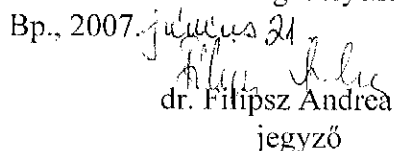 Bp., 2007. június 21
dr. Filipsz Andrea
jegyző